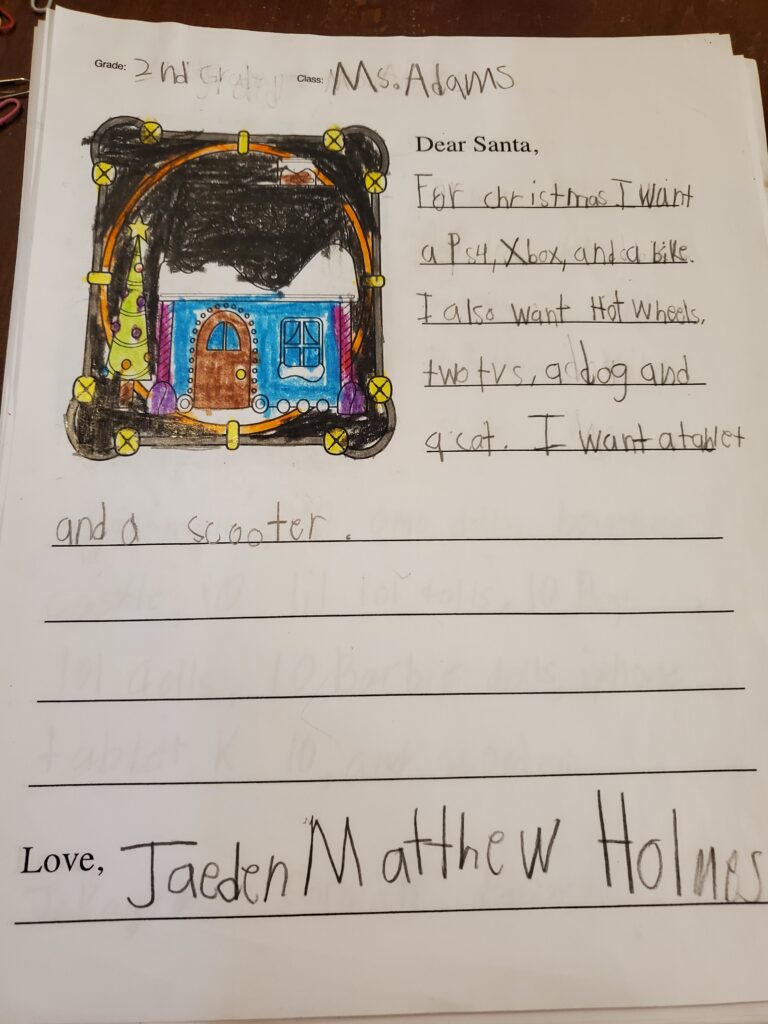 Grade: 2nd Grade Class: Ms. Adams
Dear Santa,
For christmas I want
a Ps4, Xbox, and a bike.
I also want Hot Wheels,
two tvs, a dog and
a cat. I want a tablet
and a scooter.
Love, Jaeden Matthew Holmes